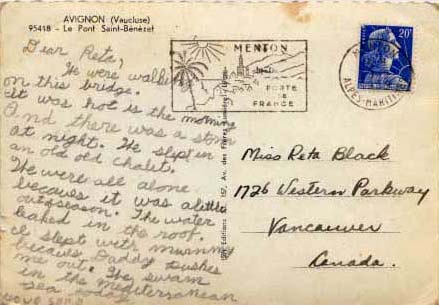 AVIGNON (Vaucluse)
95418 - Le Pont Saint-Bénézet
Dear Reta,
We were walking
on this bridge.
It was hot is the morning
And there was a storm
at night. We slept in
an old old chalet.
We were all alone
because it was alittle
outseason. The water
leaked in the roof.
I slept with mummy
becaus Daddy pushes
me out. We swam
in the mediterranean
sea today
MENTON
PORTE
DE
FRANCE
20F
MENTON
ALPES-MARITIMES
Miss Reta Black
1726 Western Parkway
Vancouver
Canada.